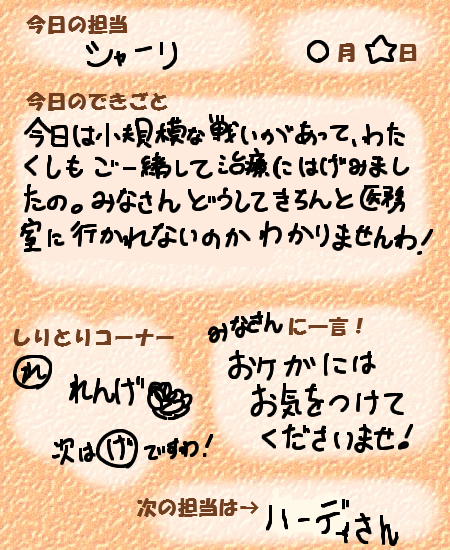 今日の担当
シャーリ
○月☆日
今日のできごと
今日は小規模な戦いがあって、わた
くしもご一緒して治療にはげみまし
たの。みなさんどうしてきちんと医務
室に行かれないのかわかりませんわ!
しりとりコーナー
れ
れんげ
次はげですわ!
みなさんに一言！
おケガには
お気をつけて
くださいませ!
次の担当は→
ハーディさん